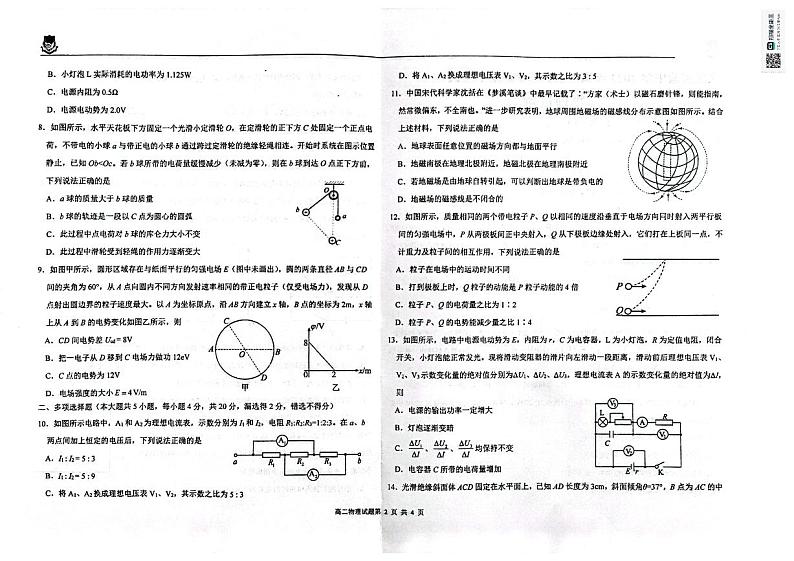 B．小灯泡 L 实际消耗的电功率为 1.125W
C．电源内阻为 0.5Ω
D．电源电动势为 2.0V
8．如图所示，水平天花板下方固定一个光滑小定滑轮 O，在定滑轮的正下方 C 处固定一个正点电
荷，不带电的小球 a 与带正电的小球 b 通过跨过定滑轮的绝缘轻绳相连。开始时系统在图示位置
静止，已知 Ob<Oc。若 b 球所带的电荷量缓慢减少（未减为零），则在 b 球到达 O 点正下方前，
下列说法正确的是
A．a 球的质量大于 b 球的质量
B．b 球的轨迹是一段以 C 点为圆心的圆弧
C．此过程中点电荷对 b 球的库仑力大小不变
D．此过程中滑轮受到轻绳的作用力逐渐变大
O
b
a
C
9．如图甲所示，圆形区域存在与纸面平行的匀强电场 E（图中未画出），圆的两条直径 AB 与 CD
间的夹角为 60°，从 A 点向圆内不同方向发射速率相同的带正电粒子（仅受电场力），发现从 D
点射出圆边界的粒子速度最大。以 A 为坐标原点，沿 AB 方向建立 x 轴，B 点的坐标为 2m，x 轴
上从 A 到 B 的电势变化如图乙所示，则
A．CD 间电势差 Ucd = 8V
B．把一电子从 D 移到 C 电场力做功 12eV
C．C 点的电势为 12V
D．电场强度的大小 E = 4 V/m
C
A O B
D
甲
φ/V
8
0 2 x/m
乙
二、多项选择题（本大题共 5 小题，每小题 4 分，共 20 分，漏选得 2 分，错选不得分）
10．如图所示电路中，A1 和 A2 为理想电流表，示数分别为 I1 和 I2，电阻 R1:R2:R3=1:2:3。在 a、b
两点间加上恒定的电压后，下列说法正确的是
A．I1 : I2 = 5 : 3
B．I1 : I2 = 5 : 9
C．将 A1、A2 换成理想电压表 V1、V2，其示数之比为 5 : 3
A1
a R1 R2 R3 b
A2
D．将 A1、A2 换成理想电压表 V1、V2，其示数之比为 3 : 5
11．中国宋代科学家沈括在《梦溪笔谈》中最早记载了：“方家（术士）以磁石磨针锋，则能指南，
然常微偏东，不全南也。”进一步研究表明，地球周围地磁场的磁感线分布示意图如图所示。结合
上述材料，下列说法正确的是
A．地球表面任意位置的磁场方向都与地面平行
B．地磁南极在地理北极附近，地磁北极在地理南极附近
C．若地磁场是由地球自转引起，可以判断出地球是带负电的
D．地磁场的磁感线是不闭合的
12．如图所示，质量相同的两个带电粒子 P、Q 以相同的速度沿垂直于电场方向同时射入两平行板
间的匀强电场中，P 从两极板间正中央射入，Q 从下极板边缘处射入，它们打在上板同一点，不
计重力及粒子间的相互作用，下列说法正确的是
A．粒子在电场中的运动时间不同
B．打到极板上时，Q 粒子的动能是 P 粒子动能的 4 倍
C．粒子 P、Q 的电荷量之比为 1∶2
D．粒子 P、Q 的电势能减少量之比 1∶4
P
Q
13．如图所示，电路中电源电动势为 E，内阻为 r，C 为电容器，L 为小灯泡，R 为定值电阻，闭合
开关，小灯泡能正常发光。现将滑动变阻器的滑片向左滑动一段距离，滑动前后理想电压表 V1、
V2、V3 示数变化量的绝对值分别为ΔU1、ΔU2、ΔU3，理想电流表 A 的示数变化量的绝对值为ΔI，
则
A．电源的输出功率一定增大
B．灯泡逐渐变暗
C．ΔU1/ΔI、ΔU2/ΔI、ΔU3/ΔI 均保持不变
D．电容器 C 所带的电荷量增加
V3
L A R
C
V1
V2
E r K
14．光滑绝缘斜面体 ACD 固定在水平面上，已知 AD 长度为 3cm，斜面倾角θ=37°，B 点为 AC 的中
高二物理试题第 2 页 共 4 页